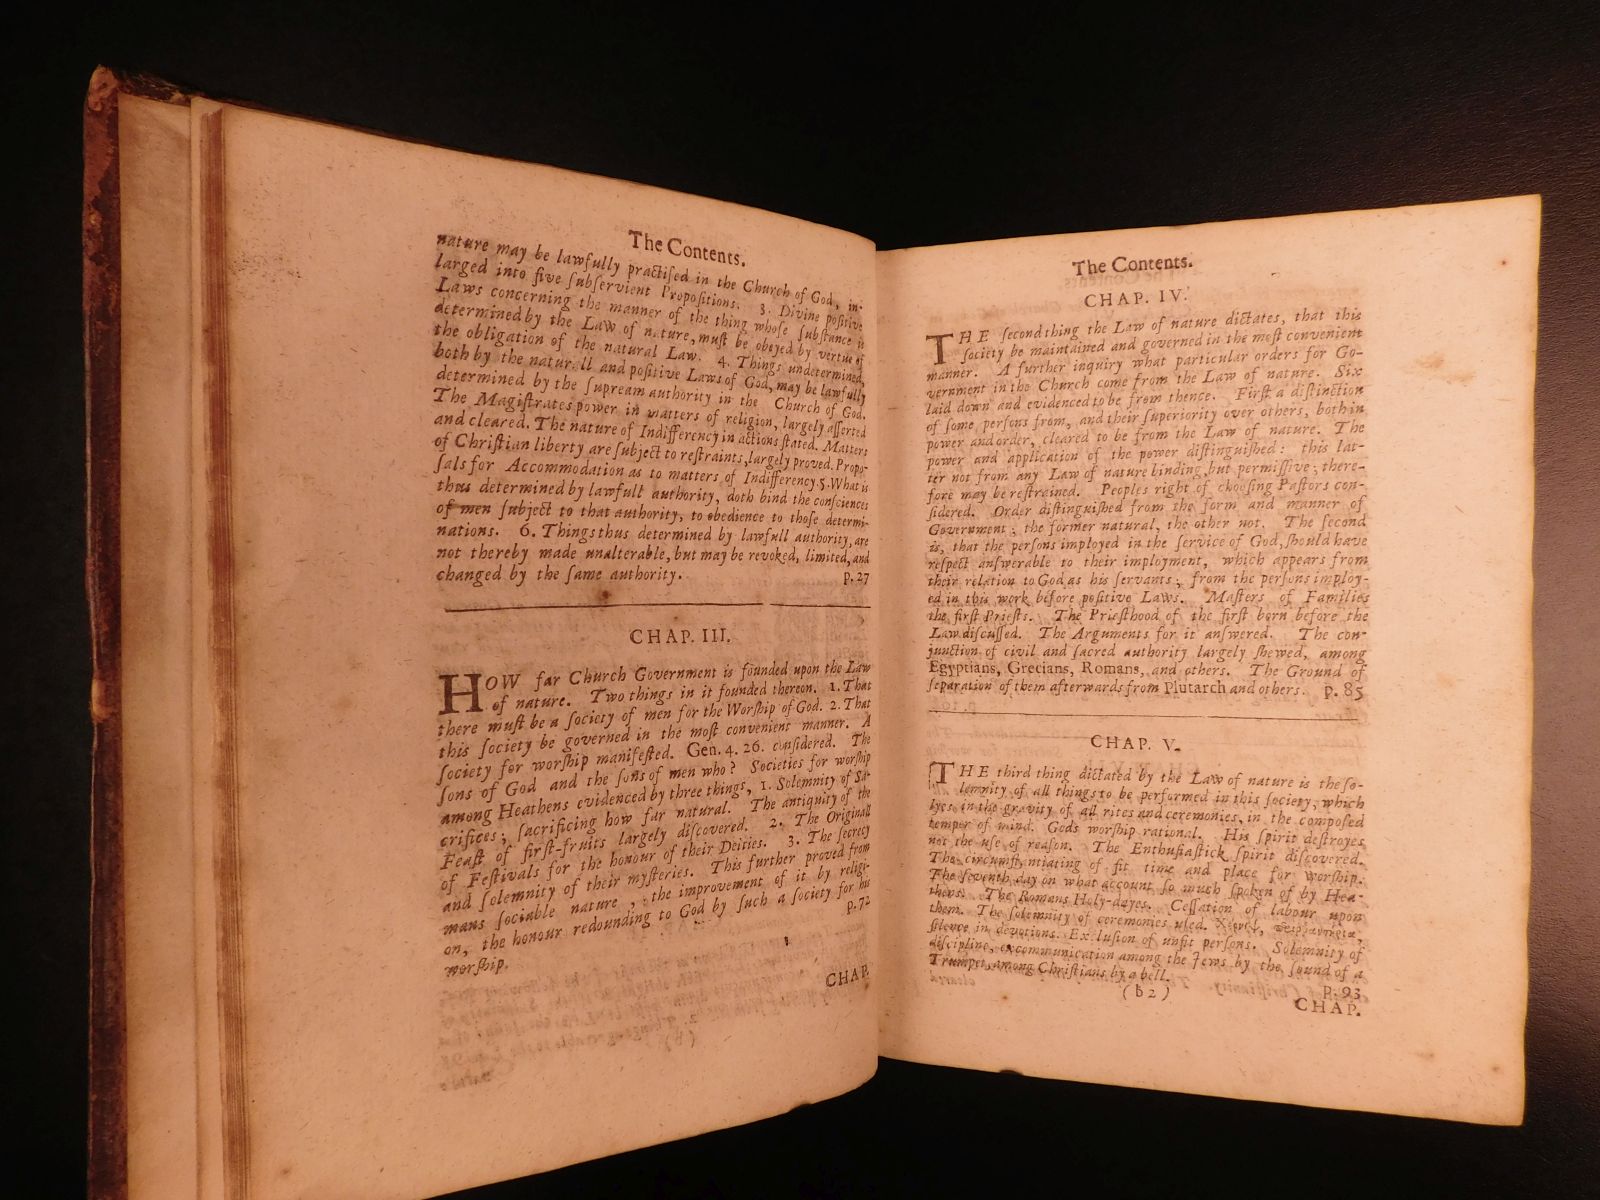 The Contents.
nature may be lawfully practiſed in the Church of God, in-
larged into five ſubſervient Propoſitions. 3. Divine poſitive
Laws concerning the manner of the thing whoſe ſubſtance is
determined by the Law of nature, muſt be obeyed by vertue of
the obligation of the natural Law. 4. Things undetermined,
both by the naturall and poſitive Laws of God, may be lawfully
determined by the ſupream authority in the Church of God.
The Magiſtrates power in matters of religion, largely aſſerted
and cleared. The nature of Indifferency in actions ſtated. Matters
of Chriſtian liberty are ſubject to reſtraints, largely proved. Propo-
ſals for Accommodation as to matters of Indifferency. 5. What is
thus determined by lawfull authority, doth bind the conſciences
of men ſubject to that authority, to obedience to thoſe determi-
nations. 6. Things thus determined by lawfull authority, are
not thereby made unalterable, but may be revoked, limited, and
changed by the ſame authority. p. 27
CHAP. III.
HOW far Church Government is founded upon the Law
of nature. Two things in it founded thereon. 1. That
there muſt be a ſociety of men for the Worſhip of God. 2. That
this ſociety be governed in the moſt convenient manner. A
ſociety for worſhip manifeſted. Gen. 4. 26. conſidered. The
ſons of God and the ſons of men who? Societies for worſhip
among Heathens evidenced by three things, 1. Solemnity of Sa-
crifices; ſacrificing how far natural. The antiquity of the
Feaſt of firſt-fruits largely diſcovered. 2. The Originall
of Feſtivals for the honour of their Deities. 3. The ſecrecy
and ſolemnity of their myſteries. This further proved from
mans ſociable nature, the improvement of it by religi-
on, the honour redounding to God by ſuch a ſociety for his
worſhip. p. 72
CHAP.
The Contents.
CHAP. IV.
THE ſecond thing the Law of nature dictates, that this
ſociety be maintained and governed in the moſt convenient
manner. A further inquiry what particular orders for Go-
vernment in the Church come from the Law of nature. Six
laid down and evidenced to be from thence. Firſt a diſtinction
of ſome perſons from, and their ſuperiority over others, both in
power and order, cleared to be from the Law of nature. The
power and application of the power diſtinguiſhed: this lat-
ter not from any Law of nature binding, but permiſſive; there-
fore may be reſtrained. Peoples right of chooſing Paſtors con-
ſidered. Order diſtinguiſhed from the form and manner of
Government; the former natural, the other not. The ſecond
is, that the perſons imployed in the ſervice of God, ſhould have
reſpect anſwerable to their imployment, which appears from
their relation to God as his ſervants; from the perſons imploy-
ed in this work before poſitive Laws. Maſters of Families
the firſt Prieſts. The Prieſthood of the firſt born before the
Law diſcuſſed. The Arguments for it anſwered. The con-
junction of civil and ſacred authority largely ſhewed, among
Egyptians, Grecians, Romans, and others. The Ground of
ſeparation of them afterwards from Plutarch and others. p. 85
CHAP. V.
THE third thing dictated by the Law of nature is the ſo-
lemnity of all things to be performed in this ſociety, which
lyes in the gravity of all rites and ceremonies, in the compoſed
temper of mind. Gods worſhip rational. His ſpirit deſtroyes
not the uſe of reaſon. The Enthuſiaſtick ſpirit diſcovered.
The circumſtantiating of fit time and place for worſhip.
The ſeventh day on what account ſo much ſpoken of by Hea-
thens. The Romans Holy-dayes. Ceſſation of labour upon
them. The ſolemnity of ceremonies uſed.
ſilence in devotions. Excluſion of unfit perſons. Solemnity of
diſcipline, excommunication among the Jews by the ſound of a
Trumpet, among Chriſtians by a bell. p. 93
(b 2)
CHAP.